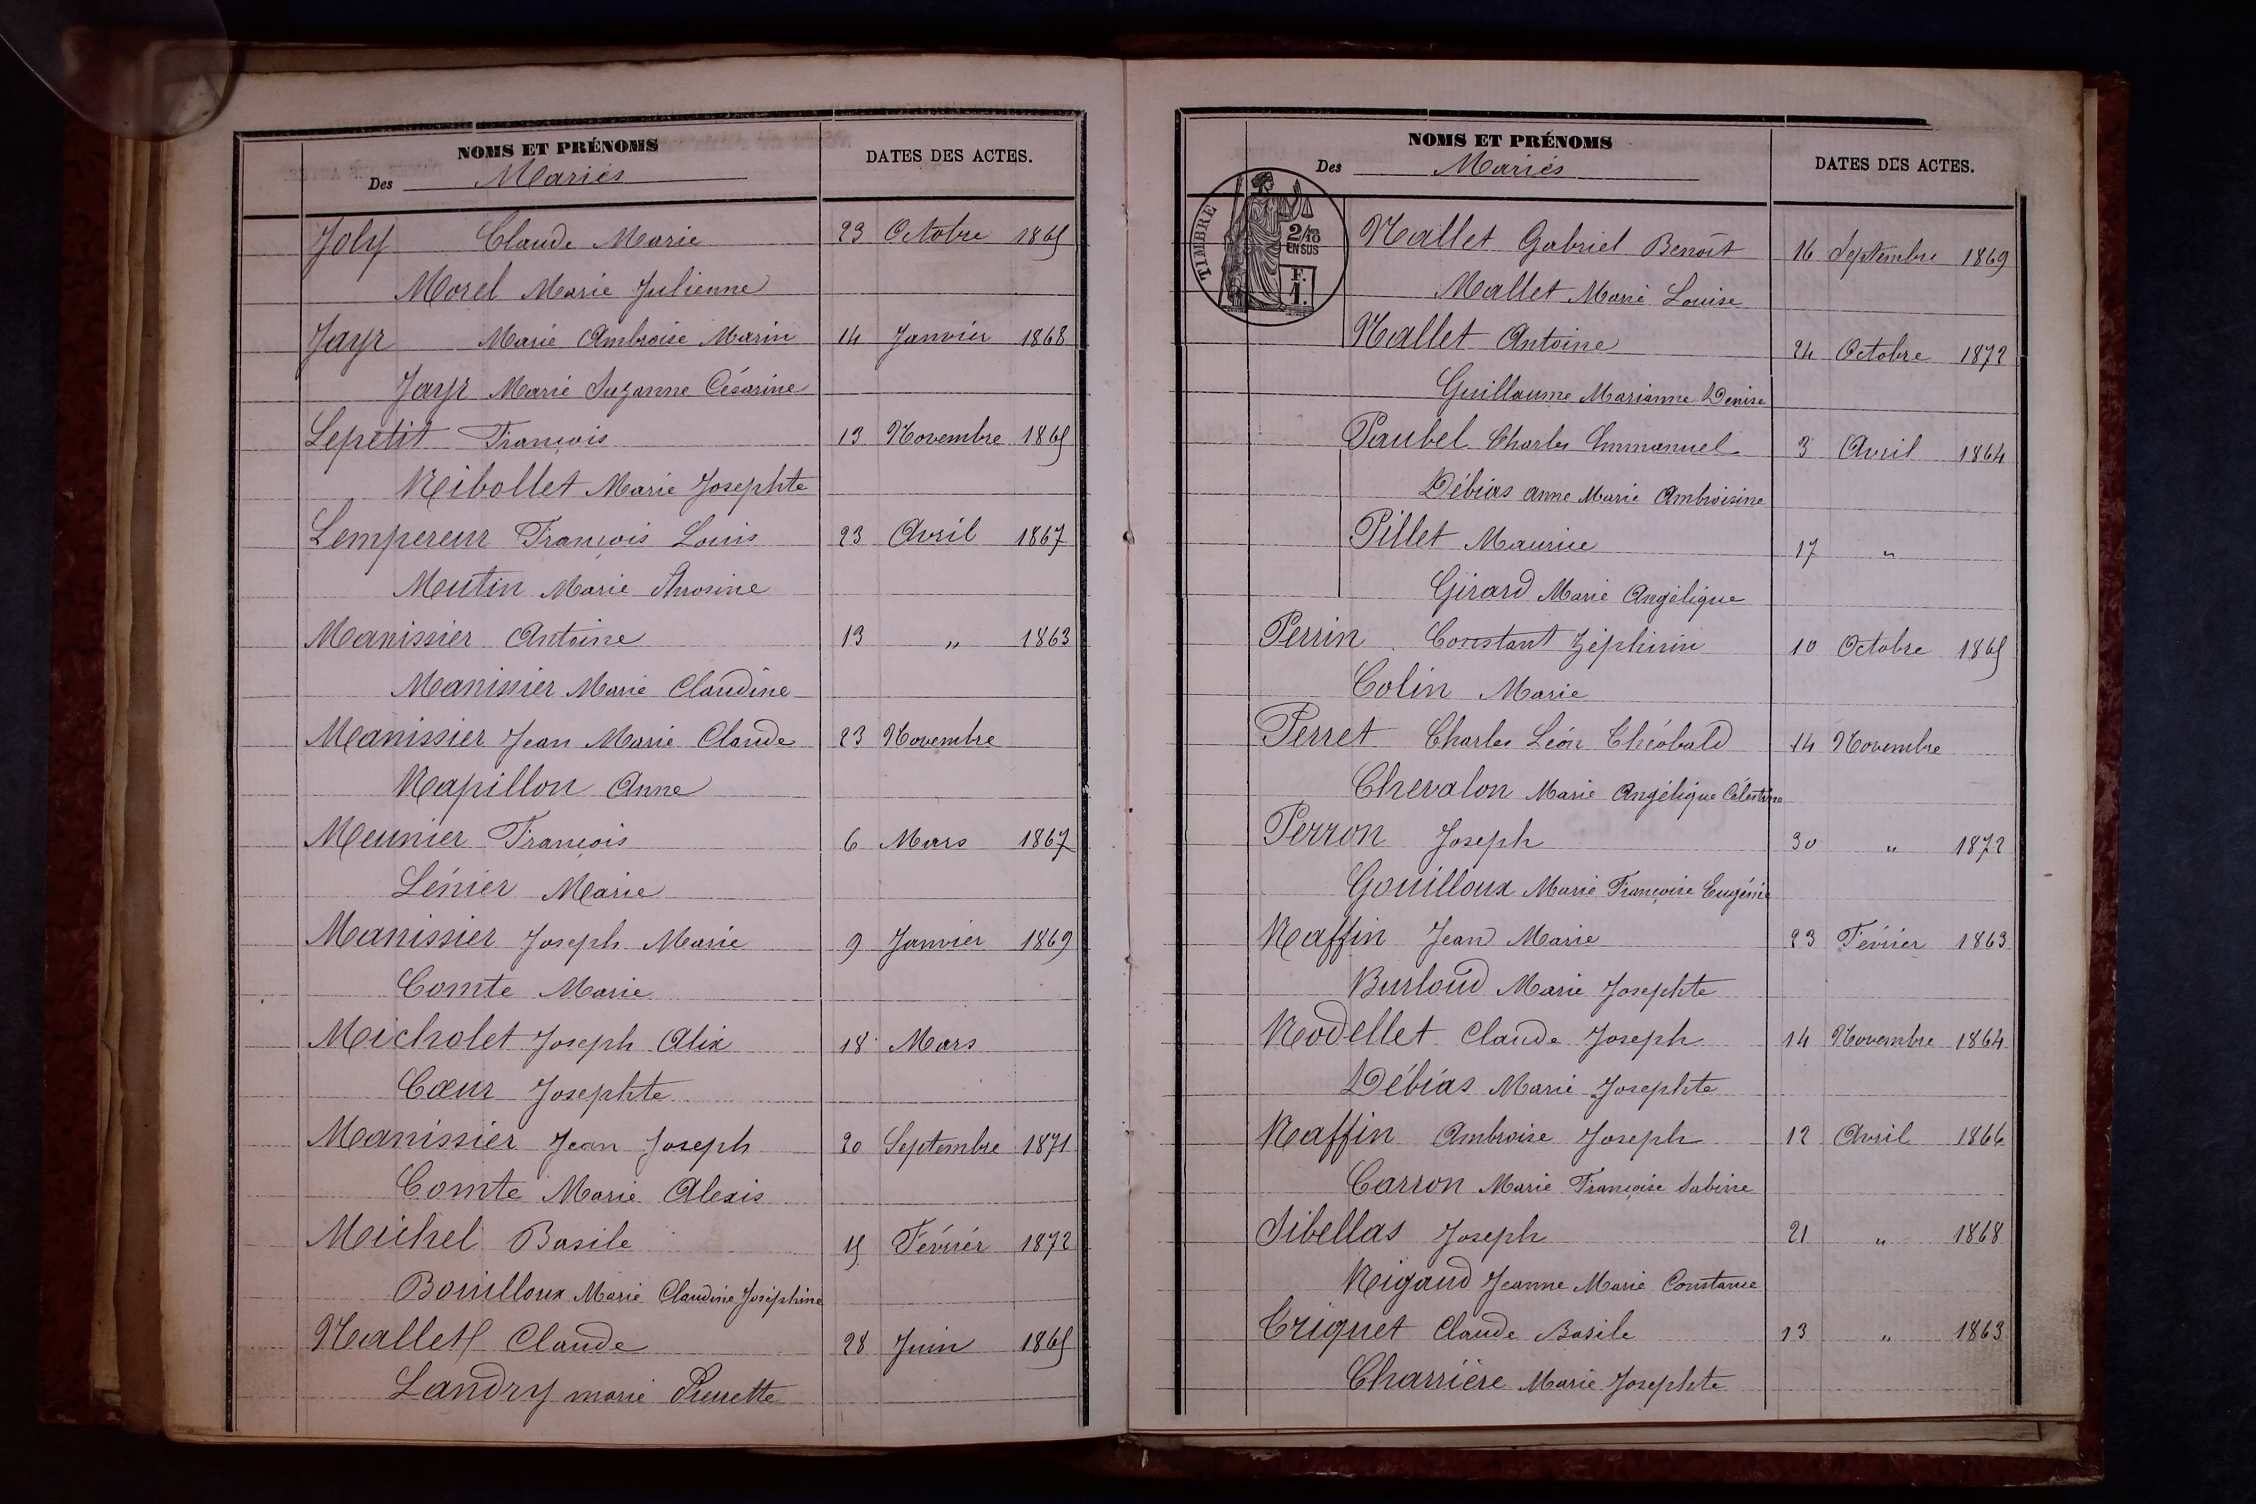 NOMS ET PRÉNOMS
Des Mariés
DATES DES ACTES.
Joly Claude Marie 23 Octobre 1865
Morel Marie Julienne
Jayr Marie Ambroise Marin 14 Janvier 1868
Jayr Marie Suzanne Césarine
Lepetit François 13 Novembre 1865
Ribollet Marie Josephte
Lempereur François Louis 23 Avril 1867
Mutin Marie
Manissier Antoine 13 " 1863
Manissier Marie Claudine
Manissier Jean Marie Claude 23 Novembre
Rapillon Anne
Meunier François 6 Mars 1867
Lénier Marie
Manissier Joseph Marie 9 Janvier 1869
Comte Marie
Micholet Joseph Alix 18 Mars
Cœur Josephte
Manissier Jean Joseph 20 Septembre 1871
Comte Marie Alexis
Michel Basile 15 Février 1872
Bouilloux Marie Claudine Joséphine
Nallet Claude 28 Juin 1865
Landry marie Pierrette
NOMS ET PRÉNOMS
Des Mariés
DATES DES ACTES.
TIMBRE
2/10
EN SUS
F.
1.
Nallet Gabriel Benoît 16 Septembre 1869
Mallet Marie Louise
Nallet Antoine 24 Octobre 1872
Guillaume Marianne Denise
Paubel Charles Emmanuel 3 Avril 1864
Débias anne Marie Ambroisine
Pillet Maurice 17 "
Girard Marie Angélique
Perrin Constant Zéphirin 10 Octobre 1865
Colin Marie
Perret Charles Léon Théobald 14 Novembre
Chevalon Marie Angélique Célestine
Perron Joseph 30 " 1872
Gouilloux Marie Françoise Eugénie
Raffin Jean Marie 23 Février 1863
Burloud Marie Josephte
Rodellet Claude Joseph 14 Novembre 1864
Débias Marie Josephte
Raffin Ambroise Joseph 12 Avril 1866
Carron Marie Françoise Sabine
Sibellas Joseph 21 " 1868
Rigaud Jeanne Marie Constance
Triquet Claude Basile 13 " 1863
Charrière Marie Josephte